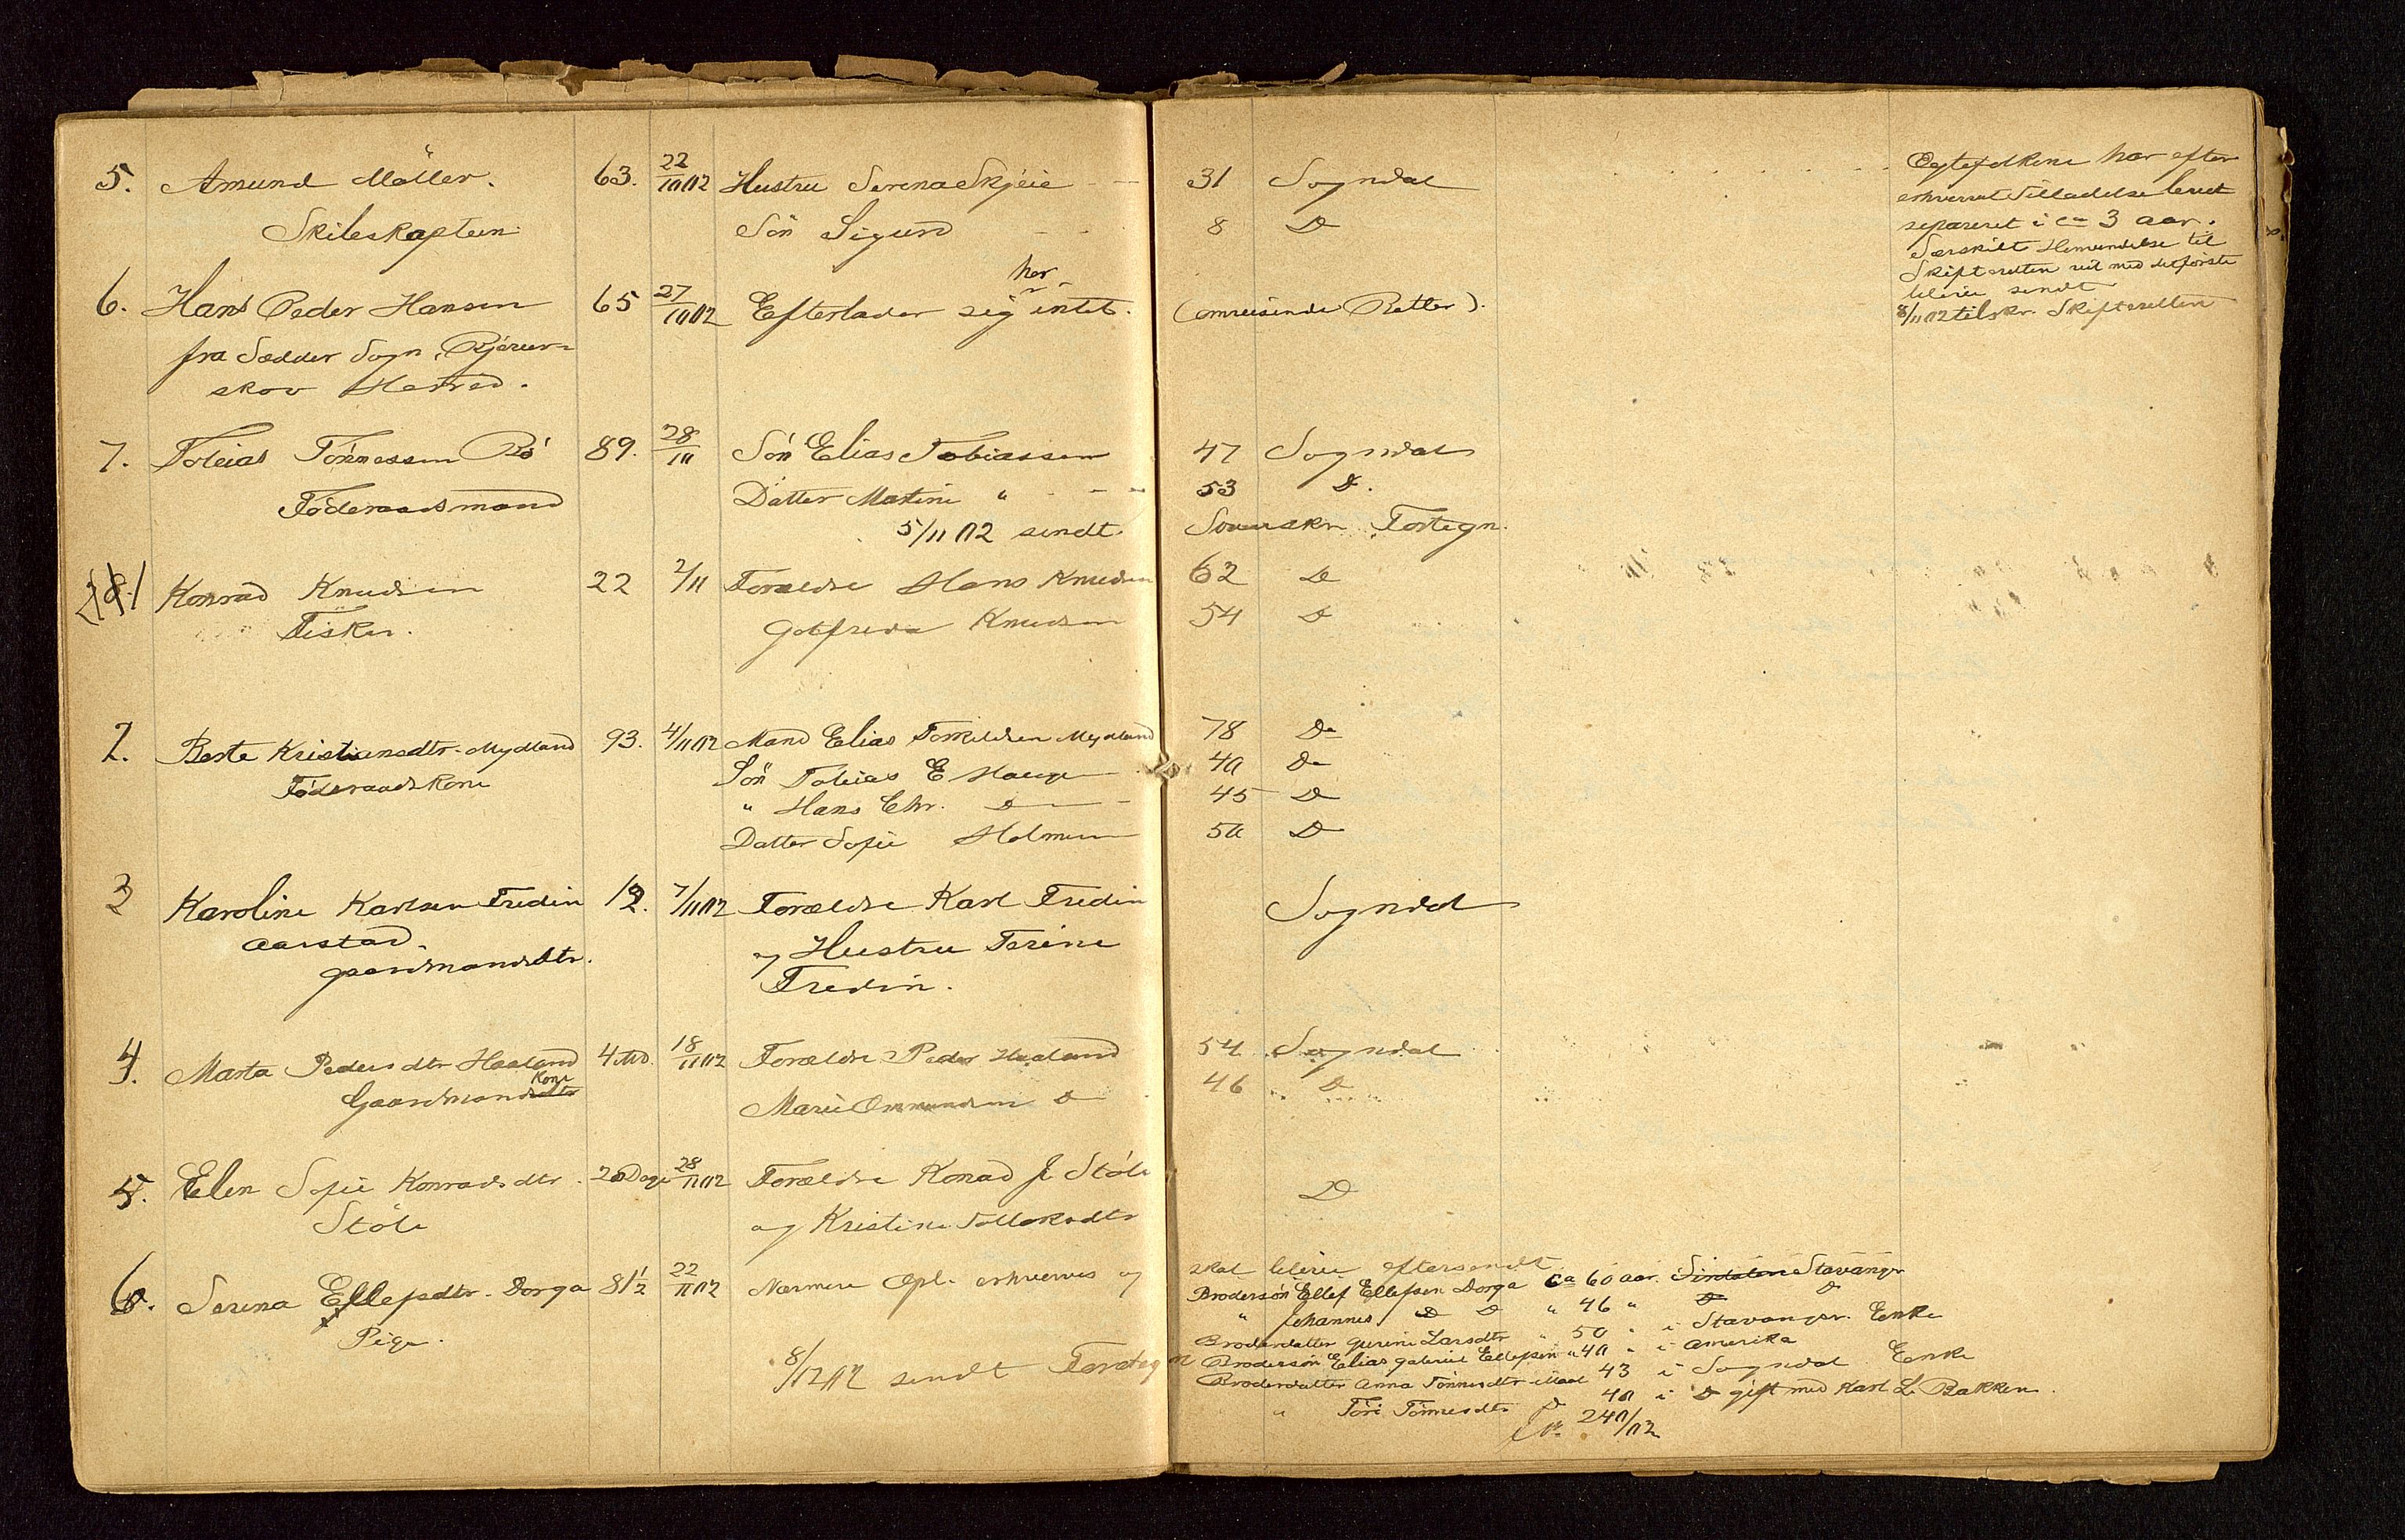 5. Amund Möller. 63. 22/10 02 Hustru Serena Skjeie 31 Sogndal
Skibskaptein Sön Sigurd 8 Do
Egtefolkene har efter
erhvervet Tilladelse levet
separeret i ca 3 aar.
Særskilt Henvendelse til
Skifteretten vil med det förste
blive sendt
8/11 02 tilskr. Skifteretten
6. Hans Peder Hansen 65 27/10 02 Efterlader sig her intet. (omreisende Rotter).
fra Sædder Sogn, Bjæver-
skov Herred.
7. Tobias Tönnessen Rö 89. 28/10 Sön Elias Tobiassen 47 Sogndal
Föderaadsmand Datter Martine " 53 Do.
5/11 02 sendt Fortegn.
1 Konrad Knudsen 22 2/11 Forældre Hans Knudsen 62 Do
Fisker. Gotfreda Knudsen 54 Do
2. Berte Kristiansdtr. Mydland 93. 4/11 02 Mand Elias Torkildsen Mydland 78 Do
Föderaadskone Sön Tobias E Hauge 40 Do
" Hans Chr. Do 45 Do
Datter Sofie Holmen 50 Do
3 Karoline Karlsen Fredin 12. 7/11 02 Forældre Karl Fredin Sogndal
Aarstad og Hustru Terine
gaardmandsdtr. Fredin.
4. Marta Pedersdtr Haaland 4 Md. 18/11 02 Forældre Peder Haaland 54 Sogndal
Gaardmandskone Marie Ommundsen Do 46 Do
5. Elen Sofie Konradsdtr. 20 Dage 28/11 02 Forældre Konrad J. Stöle Do
Stöle og Kristine Tollaksdtr
6. Serena Ellefsdtr. Dorga 81½ 22/11 02 Nærmere Opl. erhverves og skal blive eftersendt.
Pige.
Brodersön Ellef Ellefsen Dorga ca 60 aar. Stavanger
" Johannes Do Do " 46 " Do
Broderdatter Gurine Larsdtr " 50 " i Stavanger. Enke
Brodersön Elias Gabriel Ellefsen " 40 " i Amerika
8/12 02 sendt Fortegn
Broderdatter Anna Tönnesdtr 43 i Sogndal Enke
" Töre Tönnesdtr Do 40 i Do gift med Karl L. Bakken.
240/02